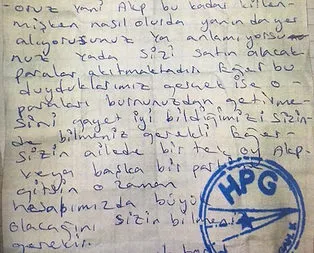 oruz yani Akp bu kadar kirlen-
mişken nasıl olurda yanında yer
alıyorsunuz ya anlamıyorsu-
nuz yada sizi satın alacak
paralar akıtmaktadır Eğer bu
duyduklarımız gerçek ise o
paraları burnunuzdan getirme-
sini gayet iyi bildiğimizi sizin-
de bilmeniz gerekli Eğer
sizin ailede bir tek oy Akp
veya başka bir
girsin o zaman
hesabımızda büyü
olacağını sizin
gerekir.
HPG